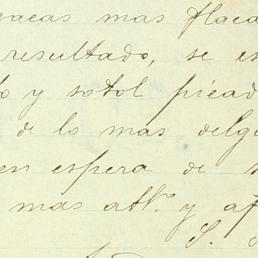 vacas mas flaca
resultado, se es
o y sotol picad
de lo mas delg
en espera de
mas attº. y af
S.